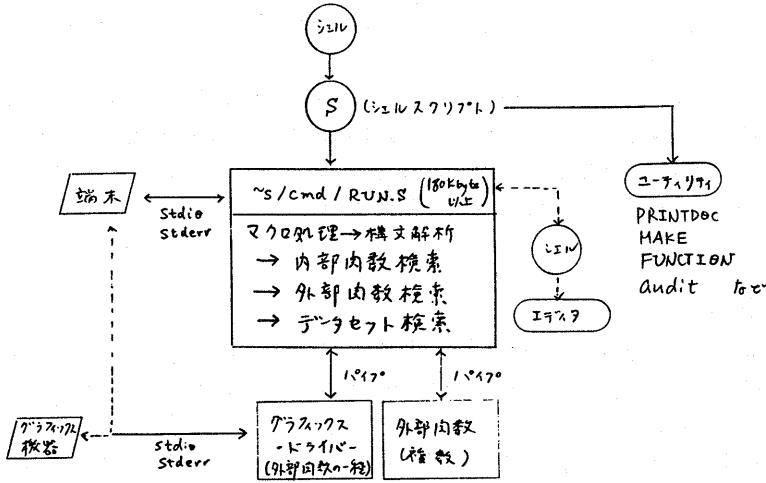 シェル
S (シェルスクリプト)
~s/cmd/RUN.S (180Kbyte以上)
マクロ処理→構文解析
→ 内部関数検索
→ 外部関数検索
→ データセット検索
端末
stdio
stderr
シェル
エディタ
ユーティリティ
PRINTDOC
MAKE
FUNCTION
audit など
パイプ
パイプ
グラフィックス
機器
stdio
stderr
グラフィックス
-ドライバー-
(外部関数の一種)
外部関数
(複数)